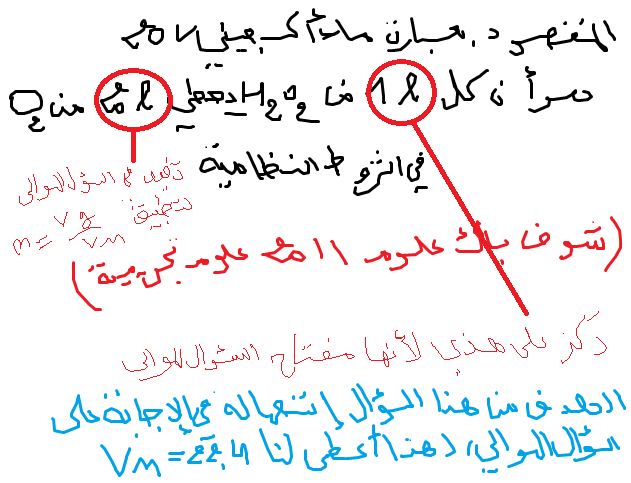 المقصود بعبارة ماء أكسجيني 20V
هو أن كل 1L من H2O2 يعطي 20L من O2
في الشروط النظامية
تفيد في السؤال الموالي
بتطبيق n = Vg/VM
(شوف باك علوم 2011 علوم تجريبية)
ركز على هذي لأنها مفتاح السؤال الموالي
الهدف من هذا السؤال إستعماله في الإجابة على
السؤال الموالي، لهذا أعطى لنا VM = 22,4